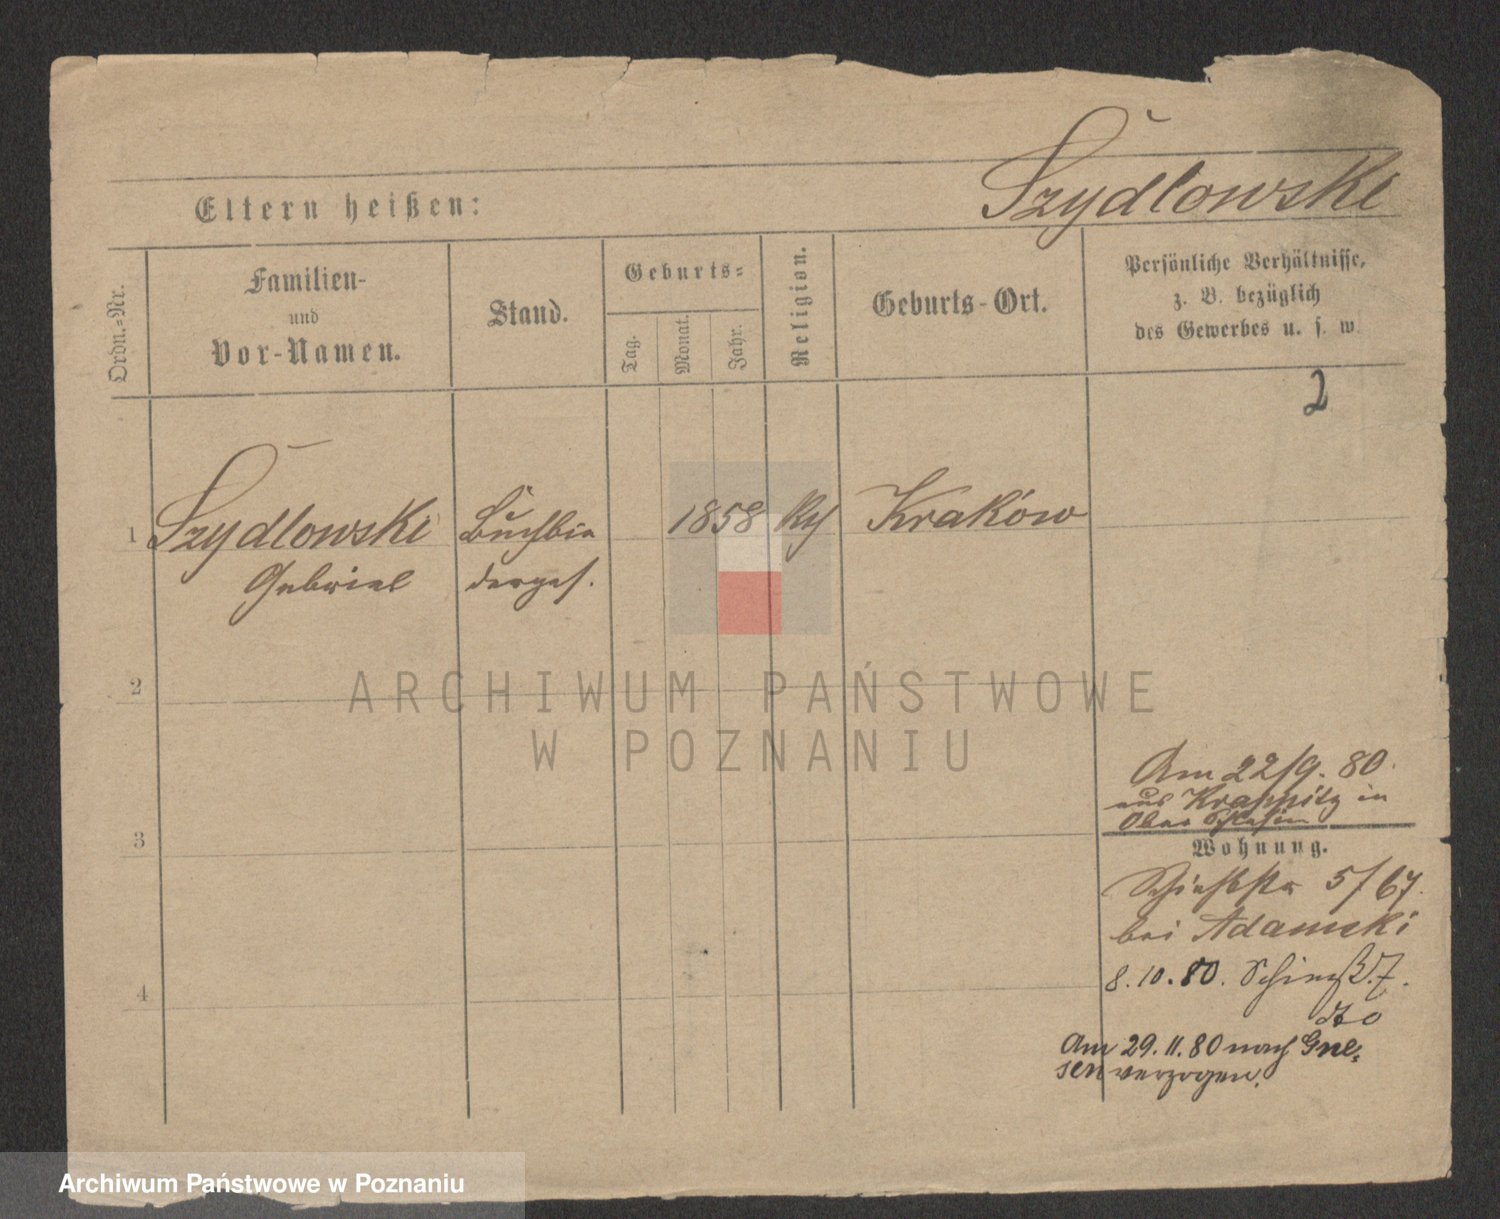 Szydlowski
Eltern heißen:
Ordn.-Nr.
Familien-
und
Vor-Namen.
Stand.
Geburts-
Tag.
Monat.
Jahr.
Religion.
Geburts-Ort.
Persönliche Verhältnisse,
z. B. bezüglich
des Gewerbes u. s. w.
2
1 Szydlowski Buchbin 1858 Kraków
Gabriel derges.
2
ARCHIWUM PAŃSTWOWE
W POZNANIU
Am 22/9. 80.
aus Krappitz in
Ober Schlesien
3
Wohnung.
5/67.
bei Adamski
4
8.10.80. 7.
dto
Am 29.11.80 nach Gne-
sen verzogen.
Archiwum Państwowe w Poznaniu